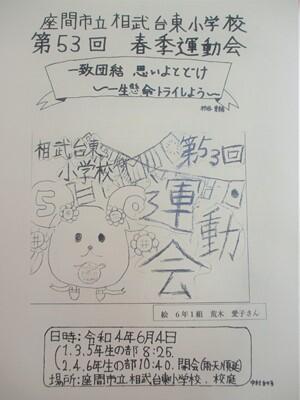 座間市立相武台東小学校
第53回 春季運動会
一致団結 思いよとどけ
〜一生懸命トライしよう〜
相武台東
小学校
第53回
運動会
絵 6年1組 荒木 愛子さん
日時:令和4年6月4日
(1.3.5年生の部 8:25.
2.4.6年生の部10:40.開会(雨天順延)
場所:座間市立相武台東小学校.校庭